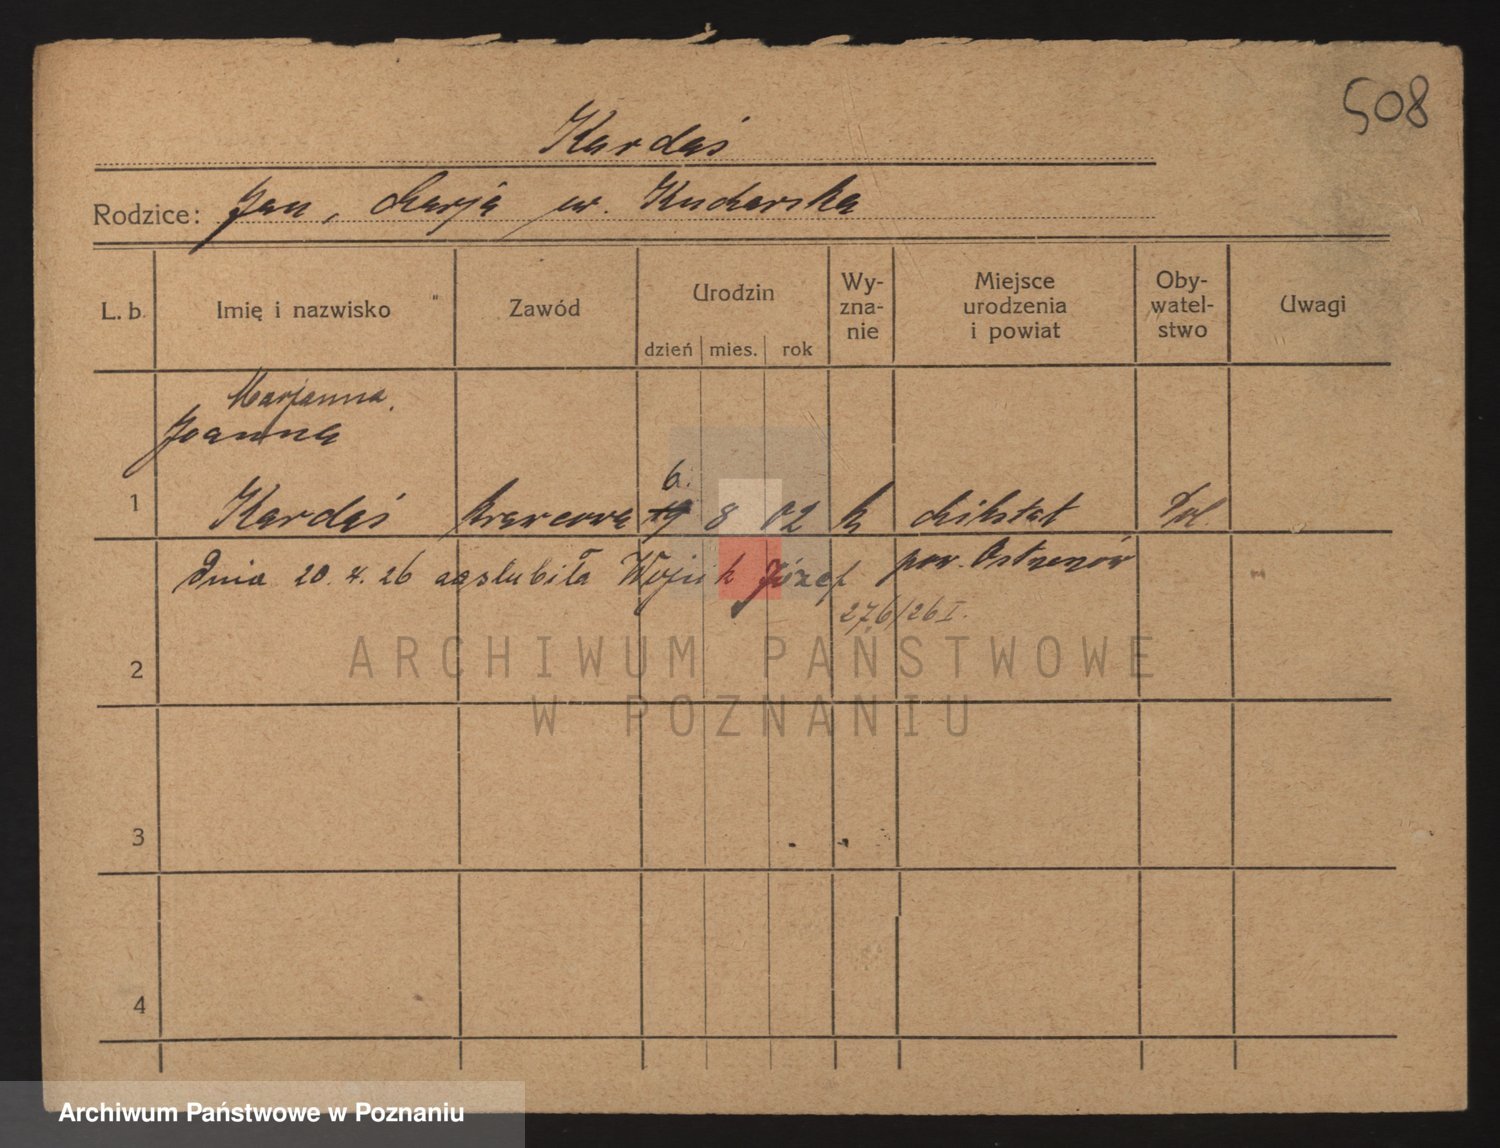 508
Kardaś
Rodzice: Jan, Marja ur. Kucharska
L. b. Imię i nazwisko Zawód Urodzin dzień mies. rok Wy-zna-nie Miejsce urodzenia i powiat Oby-watel-stwo Uwagi
Marjanna
Joanna
6.
1 Kardaś krawcowa 19 8 02 k Mikstat Pol.
Dnia 20. 4. 26 zaślubiła Józef pow. Ostrzeszów
276/26 I.
ARCHIWUM PAŃSTWOWE
2
W POZNANIU
3
4
Archiwum Państwowe w Poznaniu